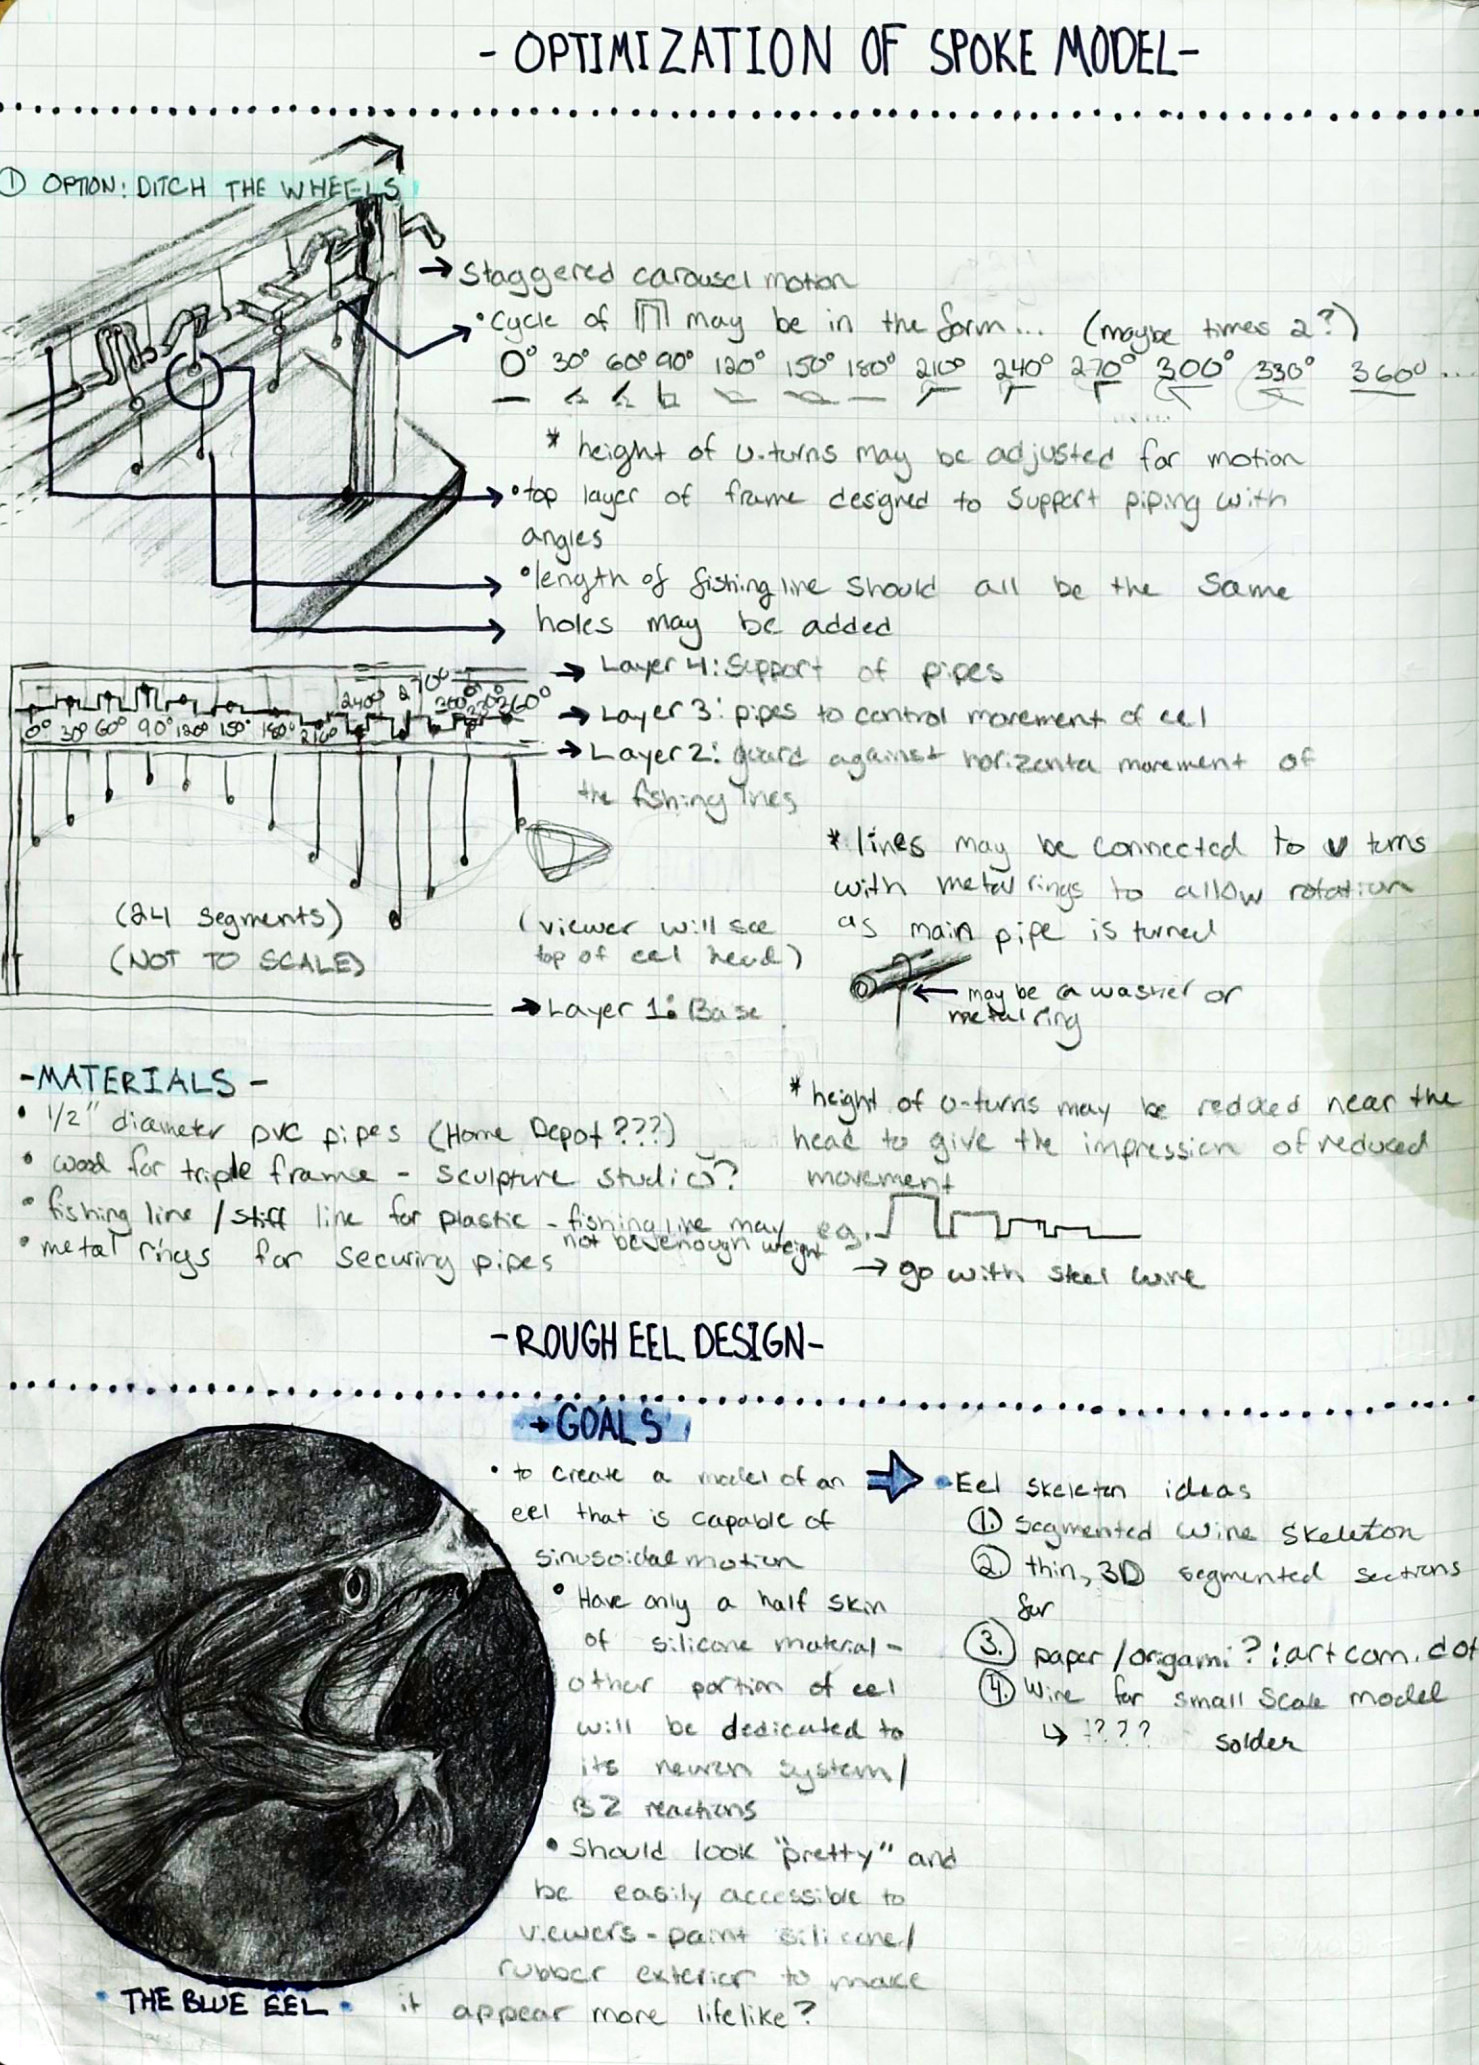 - OPTIMIZATION OF SPOKE MODEL-
① OPTION: DITCH THE WHEELS
→ Staggered carousel motion
• Cycle of may be in the form... (maybe times 2?)
0° 30° 60° 90° 120° 150° 180° 210° 240° 270° 300° 330° 360° ...
* height of U-turns may be adjusted for motion
• top layer of frame designed to support piping with
angles
• length of fishing line should all be the same
holes may be added
→ Layer 4: Support of pipes
0° 30° 60° 90° 120° 150° 180° 210° 240° 270° 300° 330° 360°
→ Layer 3: pipes to control movement of eel
→ Layer 2: guard against horizonta movement of
the fishing lines
* lines may be connected to U turns
with metal rings to allow rotation
as main pipe is turned
(24 segments)
(NOT TO SCALE)
(viewer will see
top of eel head)
← may be a washer or
metal ring
→ Layer 1: Base
-MATERIALS-
• 1/2" diameter pvc pipes (Home Depot???)
• wood for triple frame - sculpture studio?
• fishing line / stiff line for plastic - fishing line may
not be enough weight
• metal rings for securing pipes
* height of U-turns may be reduced near the
head to give the impression of reduced
movement
e.g.
→ go with steel wire
-ROUGH EEL DESIGN-
→ GOALS
• to create a model of an
eel that is capable of
sinusoidal motion
• Have only a half skin
of silicone material -
other portion of eel
will be dedicated to
its neuron system/
BZ reactions
• Should look "pretty" and
be easily accessible to
viewers - paint silicone/
rubber exterior to make
it appear more lifelike?
• Eel skeleton ideas
① segmented wire skeleton
② thin, 3D segmented sections
for
③ paper/origami?: artcom.dot
④ Wire for small scale model
↳ ???? solder
• THE BLUE EEL •